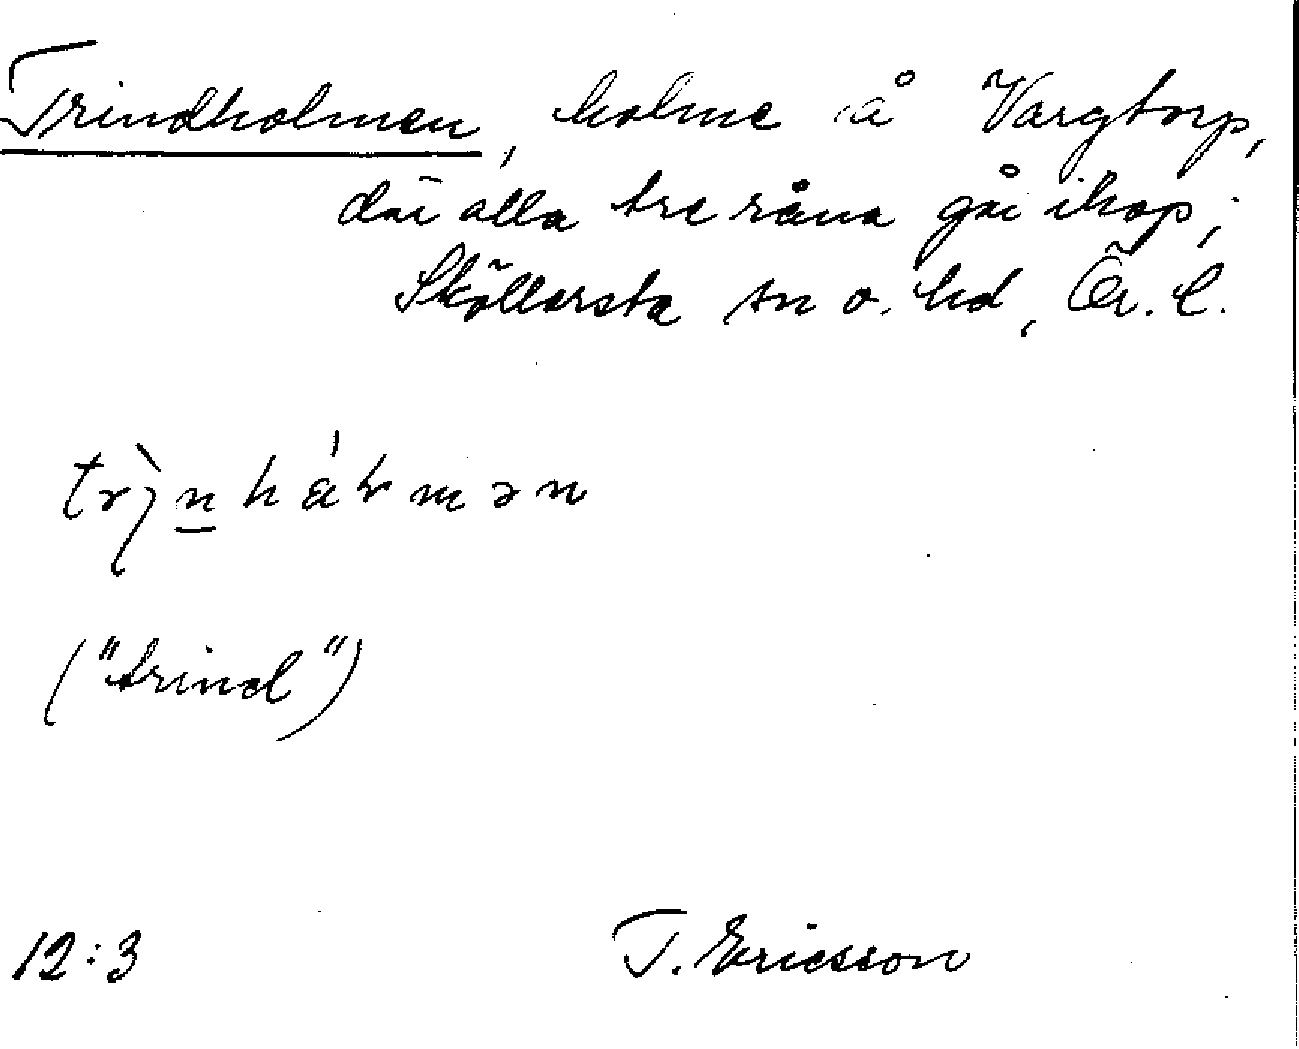 Trindholmen, holme å Vargtorp,
där alla tre råna går ihop;
Sköllersta sn o. hd, Ör. l.
("trind")
12:3 T. Ericsson